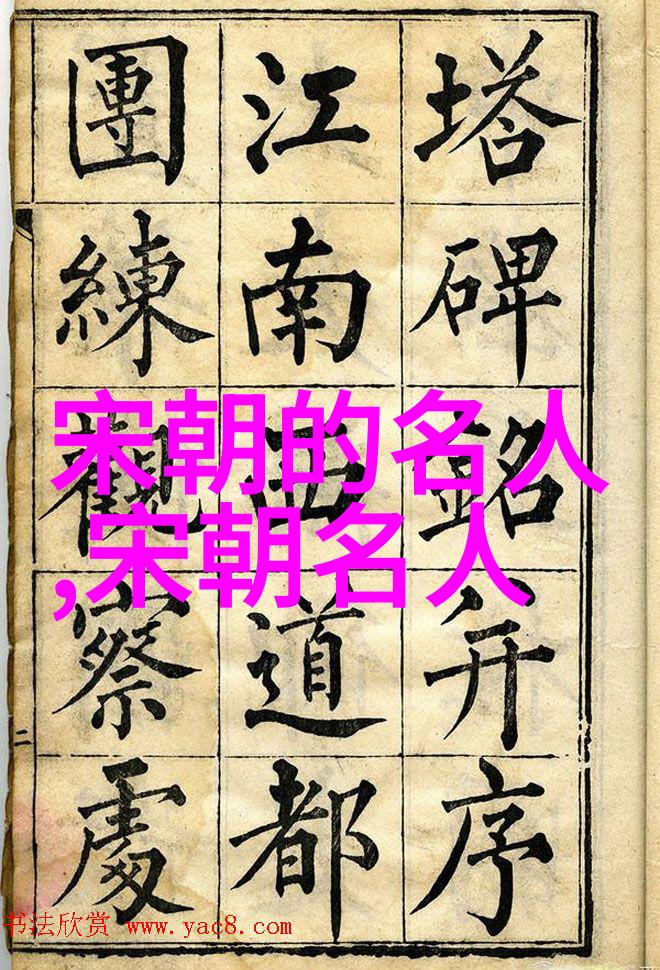 塔碑銘并序
江南西道都
團練觀察處
二
宋朝的名人
,宋朝名人
书法欣赏 www.yac8.com